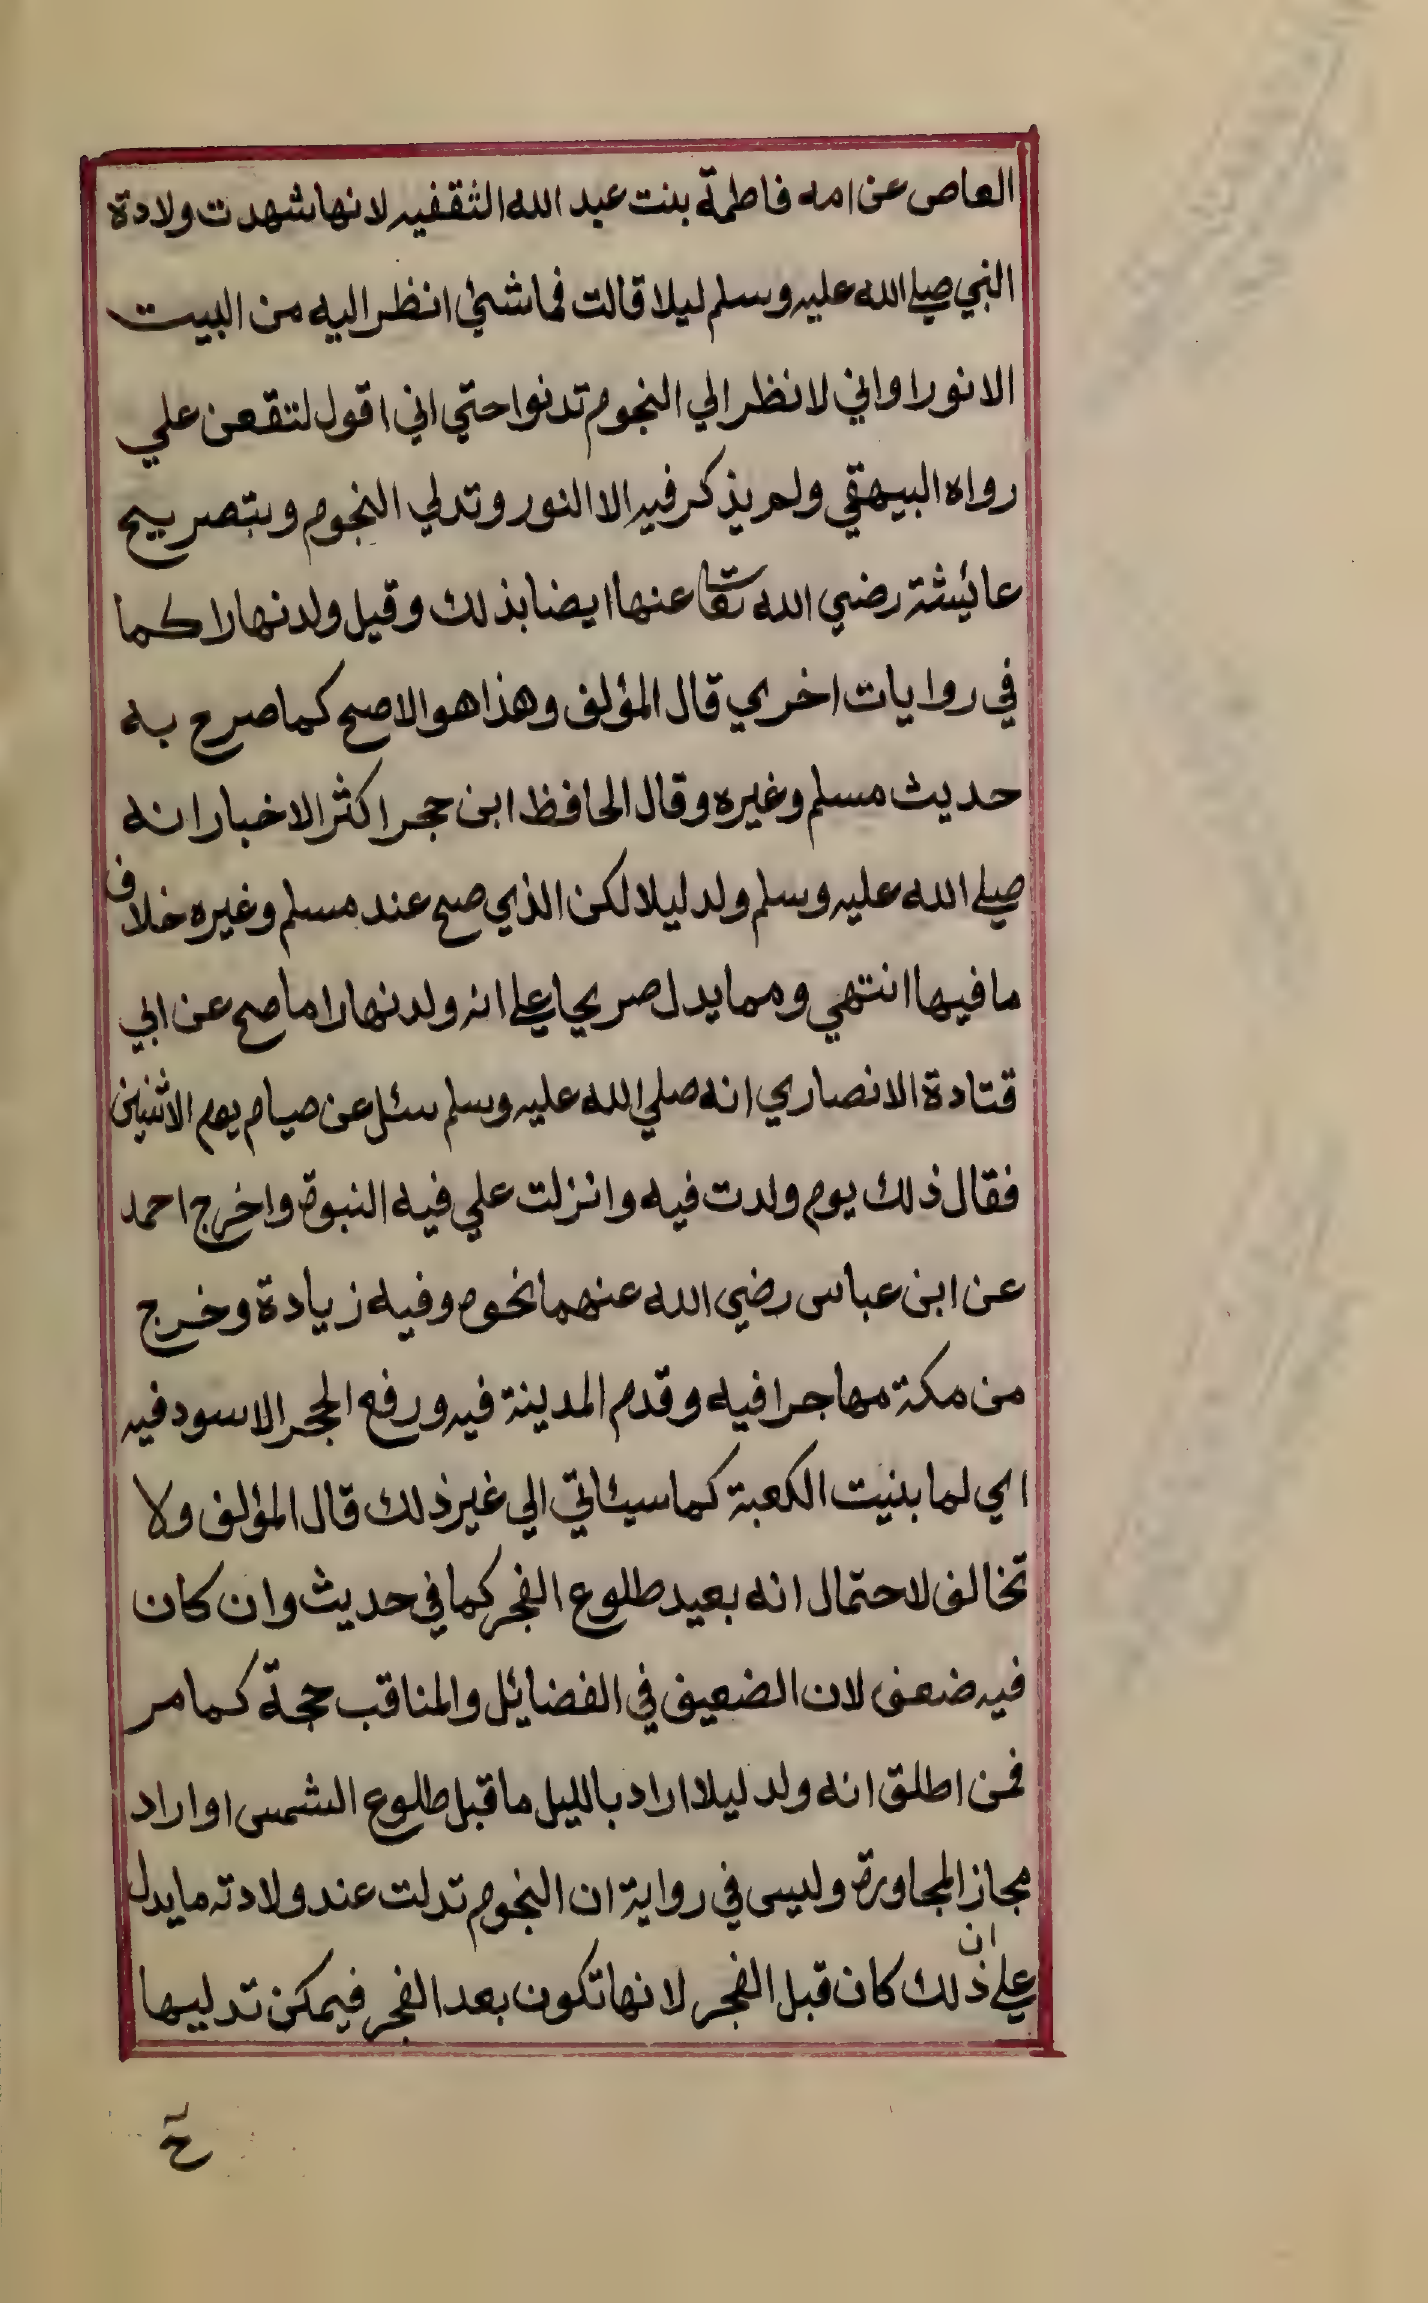 العاص عن امه فاطمة بنت عبد الله الثقفيه لانها شهدت ولادة
النبي صلي الله عليه وسلم ليلا قالت فما شئ انظر اليه من البيت
الا نورا واني لانظر الي النجوم تدنوا حتي اني اقول لتقعن علي
رواه البيهقي ولم يذكر فيه الا النور وتدلي النجوم وبتصريح
عائيشة رضي الله تعا عنها ايضا بذلك وقيل ولد نهارا كما
في روايات اخري قال المؤلف وهذا هو الاصح كما صرح به
حديث مسلم وغيره وقال الحافظ ابن حجر اكثر الاخبار انه
صلي الله عليه وسلم ولد ليلا لكن الذي صح عند مسلم وغيره خلاف
ما فيها انتهي ومما يدل صريحا علي انه ولد نهارا ما صح عن ابي
قتادة الانصاري انه صلي الله عليه وسلم سئل عن صيام يوم الاثنين
فقال ذلك يوم ولدت فيه وانزلت علي فيه النبوة واخرج احمد
عن ابن عباس رضي الله عنهما نحوه وفيه زيادة وخرج
من مكة مهاجرا فيه وقدم المدينة فيه ورفع الحجر الاسود فيه
اي لما بنيت الكعبة كما سيئاتي الي غير ذلك قال المؤلف ولا
تخالف لاحتمال انه بعيد طلوع الفجر كما في حديث وان كان
فيه ضعف لان الضعيف في الفضايئل والمناقب حجة كما مر
فمن اطلق انه ولد ليلا اراد بالليل ما قبل طلوع الشمس او اراد
مجاز المجاورة وليس في رواية ان النجوم تدلت عند ولادته ما يدل
علي ان ذلك كان قبل الفجر لانها تكون بعد الفجر فيمكن تدليها